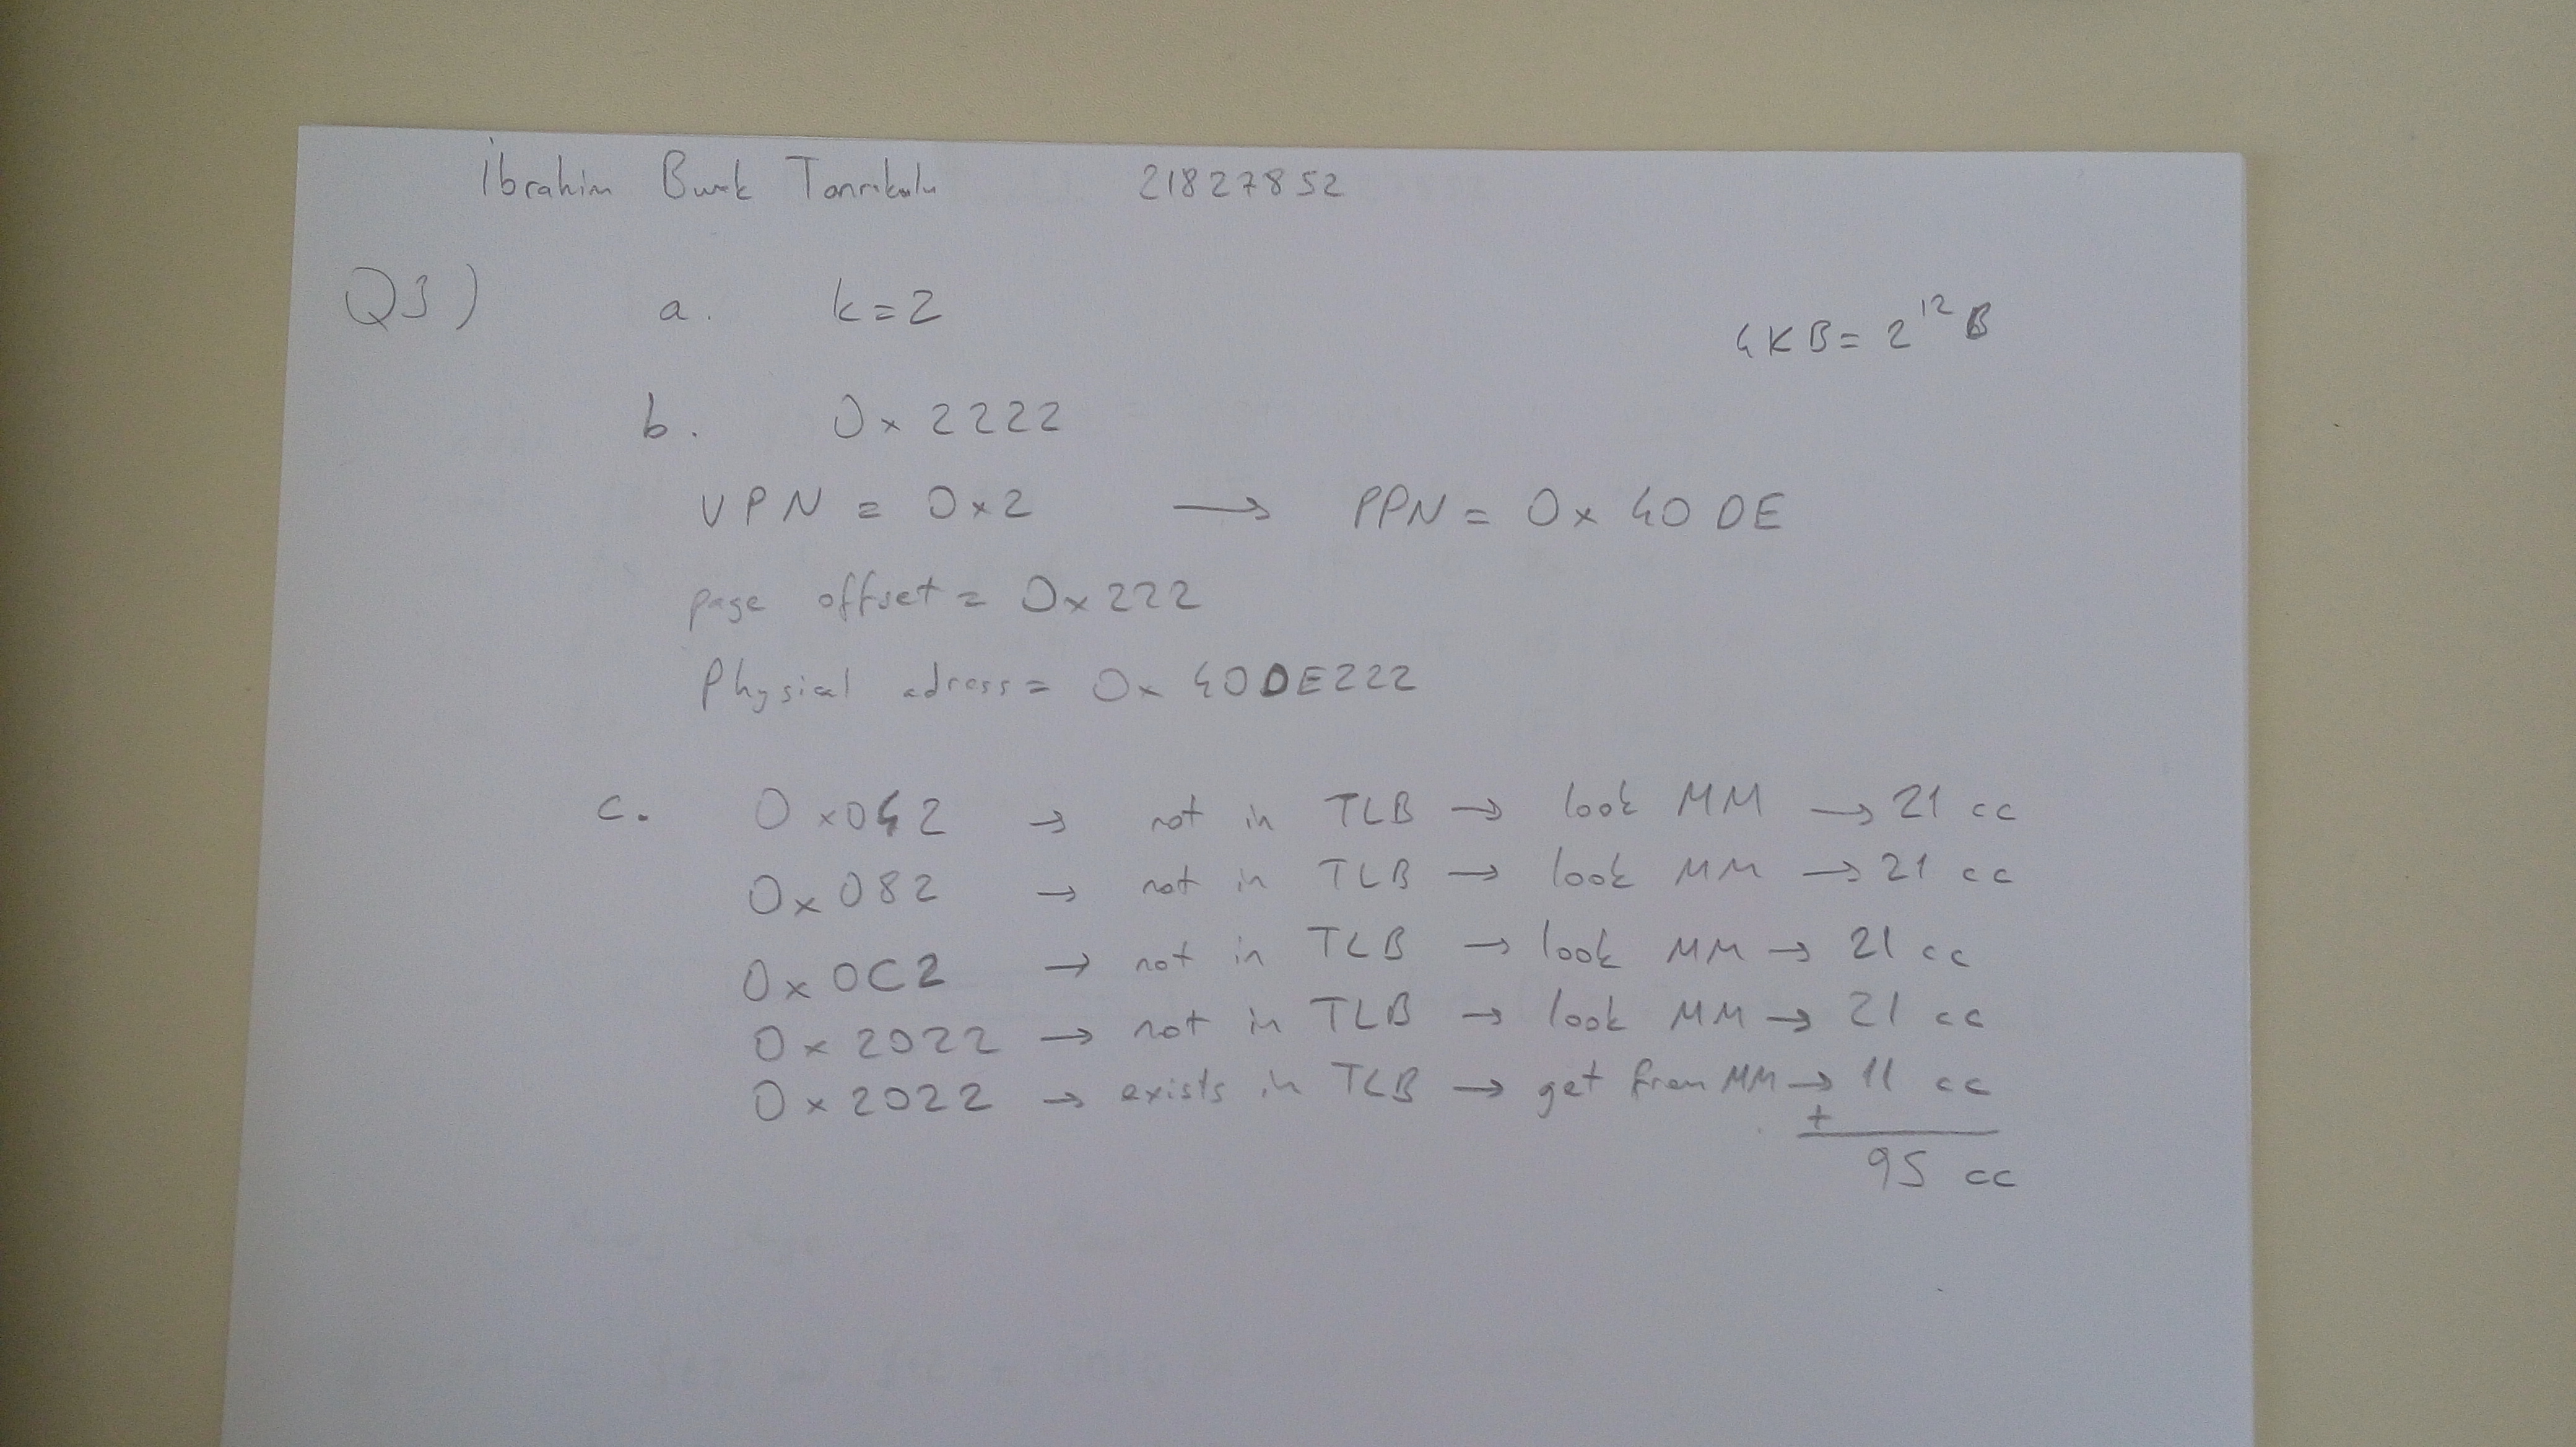 İbrahim Burak Tanrıkulu 21827852
Q3) a. k=2
4KB = 2^12 B
b. 0x2222
VPN = 0x2 → PPN = 0x40DE
page offset = 0x222
Physical adress = 0x40DE222
c. 0x042 → not in TLB → look MM → 21 cc
0x082 → not in TLB → look MM → 21 cc
0x0C2 → not in TLB → look MM → 21 cc
0x2022 → not in TLB → look MM → 21 cc
0x2022 → exists in TLB → get from MM → 11 cc
+
95 cc